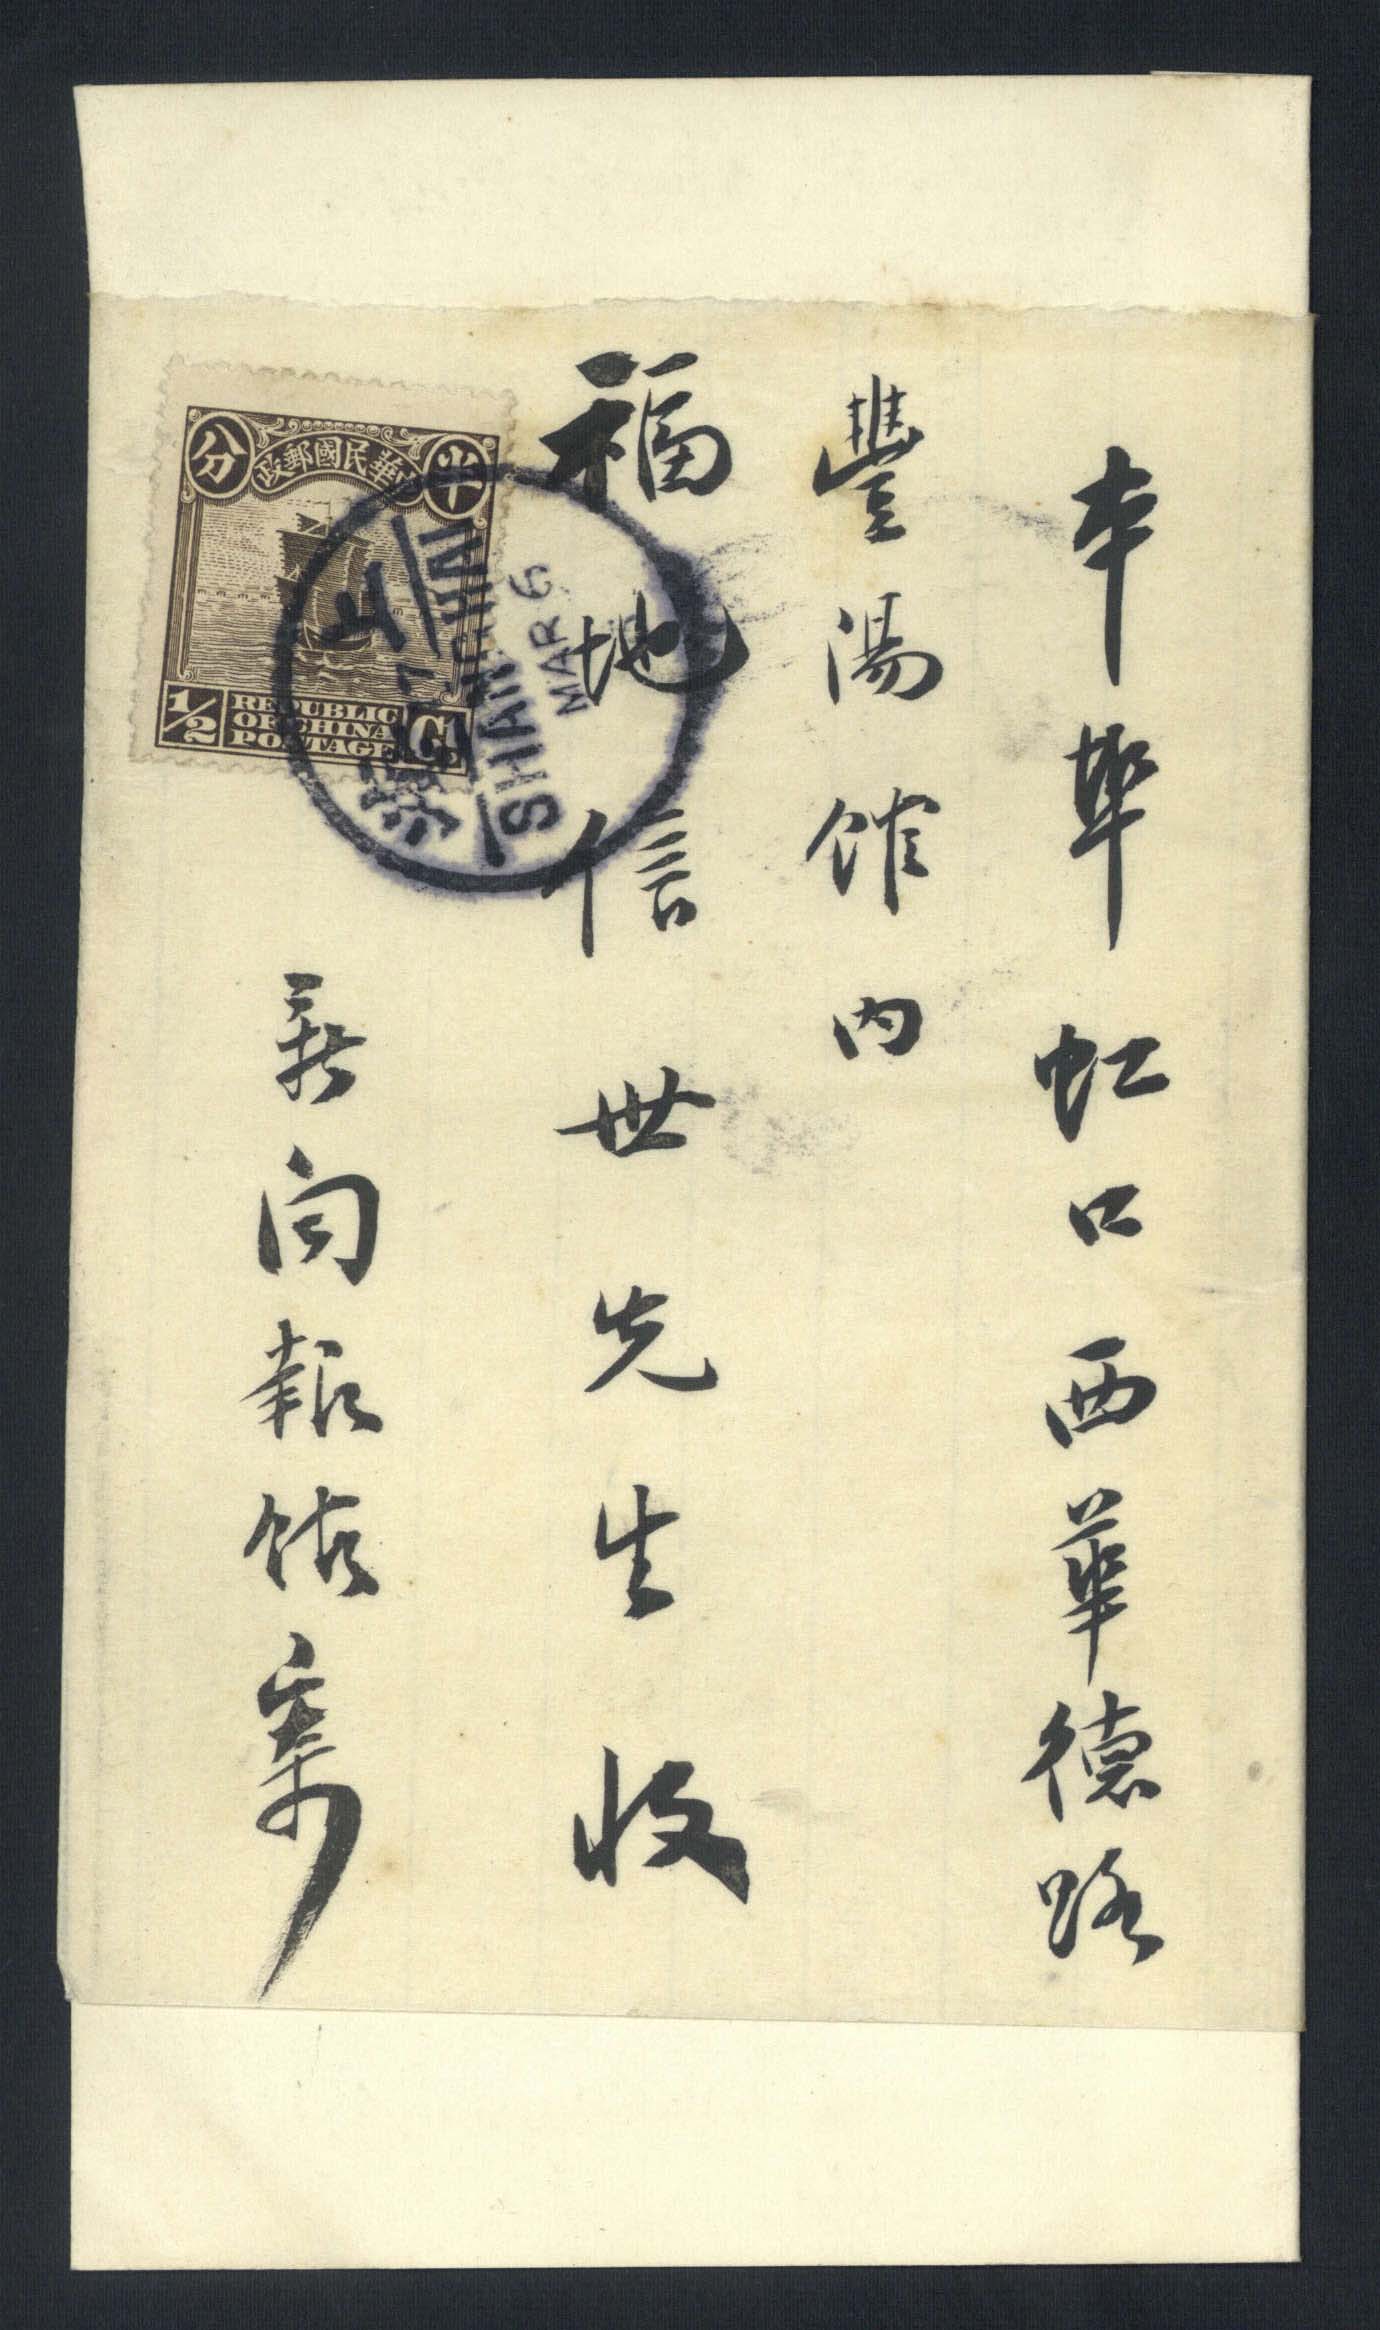 本埠虹口西華德路
豐陽館内
福地信世先生收
新聞報館寄
半
分
中華民國郵政
1/2
REPUBLIC
OF CHINA
POSTAGE
C.
上
海
SHANGHAI
SHANGHAI
MAR 6